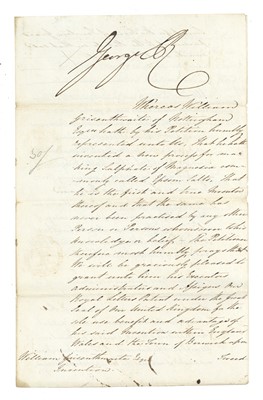 George R
Whereas William
Grisenthwaite of Nottingham
Esqre hath by his Petition humbly
represented unto Us, that he hath
invented a new process for ma
king Sulphate of Magnesia com
monly called Epsom Salts, that he
is the first and true Inventor
thereof and that the same has
never been practised by any other
Person or Persons whomsoever to his
knowledge or belief. The Petitioner
therefore most humbly prayed that
We will be graciously pleased to
grant unto him his Executors
administrators and assigns Our
Royal Letters Patent under the great
Seal of Our United Kingdom for the
sole use benefit and advantage of
his said Invention within England
Wales and the Town of Berwick upon
William Grisenthwaite Esq Tweed
Invention